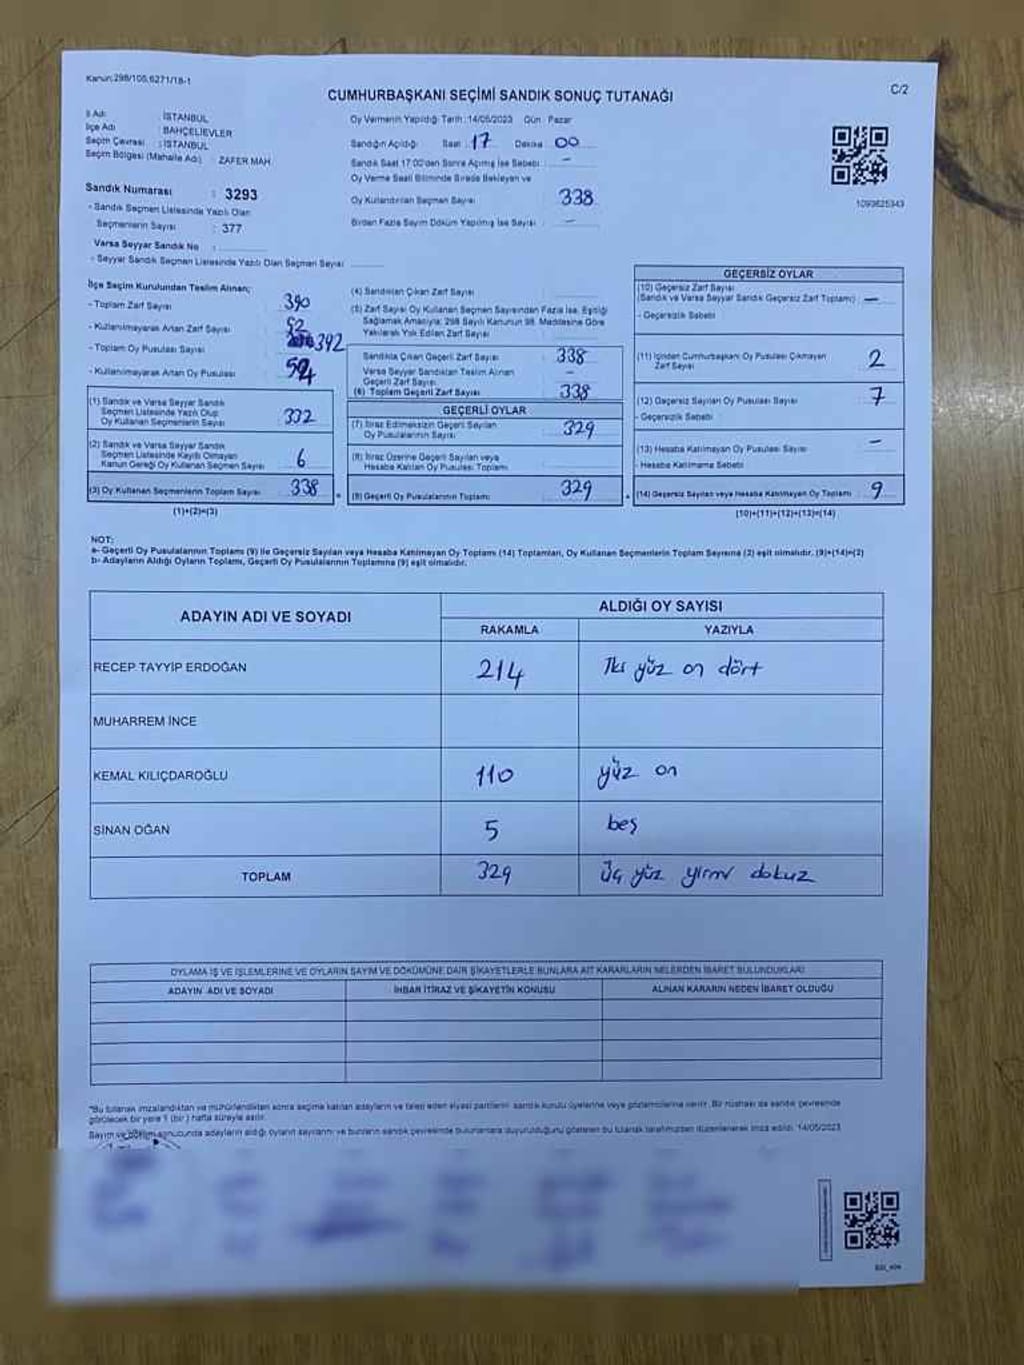 Kanun:298/105,6271/18-1
C/2
CUMHURBAŞKANI SEÇİMİ SANDIK SONUÇ TUTANAĞI
İl Adı : İSTANBUL
İlçe Adı : BAHÇELİEVLER
Seçim Çevresi : İSTANBUL
Seçim Bölgesi (Mahalle Adı) : ZAFER MAH.
Sandık Numarası : 3293
- Sandık Seçmen Listesinde Yazılı Olan
Seçmenlerin Sayısı : 377
Varsa Seyyar Sandık No :
- Seyyar Sandık Seçmen Listesinde Yazılı Olan Seçmen Sayısı
Oy Vermenin Yapıldığı Tarih : 14/05/2023 Gün : Pazar
Sandığın Açıldığı Saat : 17 Dakika 00
Sandık Saat 17:00'den Sonra Açılmış İse Sebebi : -
Oy Verme Saati Bitiminde Sırada Bekleyen ve
Oy Kullandırılan Seçmen Sayısı 338
Birden Fazla Sayım Döküm Yapılmış İse Sayısı -
1093625343
İlçe Seçim Kurulundan Teslim Alınan;
- Toplam Zarf Sayısı 390
- Kullanılmayarak Artan Zarf Sayısı 52
- Toplam Oy Pusulası Sayısı 392
- Kullanılmayarak Artan Oy Pusulası 54
(1) Sandık ve Varsa Seyyar Sandık
Seçmen Listesinde Yazılı Olup
Oy Kullanan Seçmenlerin Sayısı 332
(2) Sandık ve Varsa Seyyar Sandık
Seçmen Listesinde Kayıtlı Olmayan
Kanun Gereği Oy Kullanan Seçmen Sayısı 6
(3) Oy Kullanan Seçmenlerin Toplam Sayısı 338
(1)+(2)=(3)
(4) Sandıktan Çıkan Zarf Sayısı
(5) Zarf Sayısı Oy Kullanan Seçmen Sayısından Fazla İse, Eşitliği
Sağlamak Amacıyla; 298 Sayılı Kanunun 98. Maddesine Göre
Yakılarak Yok Edilen Zarf Sayısı
Sandıkta Çıkan Geçerli Zarf Sayısı 338
Varsa Seyyar Sandıktan Teslim Alınan
Geçerli Zarf Sayısı -
(6) Toplam Geçerli Zarf Sayısı 338
GEÇERLİ OYLAR
(7) İtiraz Edilmeksizin Geçerli Sayılan
Oy Pusulalarının Sayısı 329
(8) İtiraz Üzerine Geçerli Sayılan veya
Hesaba Katılan Oy Pusulası Toplamı
(9) Geçerli Oy Pusulalarının Toplamı 329
GEÇERSİZ OYLAR
(10) Geçersiz Zarf Sayısı
(Sandık ve Varsa Seyyar Sandık Geçersiz Zarf Toplamı) -
- Geçersizlik Sebebi
(11) İçinden Cumhurbaşkanı Oy Pusulası Çıkmayan
Zarf Sayısı 2
(12) Geçersiz Sayılan Oy Pusulası Sayısı 7
- Geçersizlik Sebebi
(13) Hesaba Katılmayan Oy Pusulası Sayısı -
- Hesaba Katılmama Sebebi
(14) Geçersiz Sayılan veya Hesaba Katılmayan Oy Toplamı 9
(10)+(11)+(12)+(13)=(14)
NOT:
a- Geçerli Oy Pusulalarının Toplamı (9) ile Geçersiz Sayılan veya Hesaba Katılmayan Oy Toplamı (14) Toplamları, Oy Kullanan Seçmenlerin Toplam Sayısına (3) eşit olmalıdır. (9)+(14)=(3)
b- Adayların Aldığı Oyların Toplamı, Geçerli Oy Pusulalarının Toplamına (9) eşit olmalıdır.
ADAYIN ADI VE SOYADI
ALDIĞI OY SAYISI
RAKAMLA YAZIYLA
RECEP TAYYİP ERDOĞAN 214 İki yüz on dört
MUHARREM İNCE
KEMAL KILIÇDAROĞLU 110 yüz on
SİNAN OĞAN 5 beş
TOPLAM 329 Üç yüz yirmi dokuz
OYLAMA İŞ VE İŞLEMLERİNE VE OYLARIN SAYIM VE DÖKÜMÜNE DAİR ŞİKAYETLERLE BUNLARA AİT KARARLARIN NELERDEN İBARET BULUNDUKLARI
ADAYIN ADI VE SOYADI İHBAR İTİRAZ VE ŞİKAYETİN KONUSU ALINAN KARARIN NEDEN İBARET OLDUĞU
"Bu tutanak imzalandıktan ve mühürlendikten sonra seçime katılan adayların ve talep eden siyasi partilerin sandık kurulu üyelerine veya gözlemcilerine verilir. Bir nüshası da sandık çevresinde
görülecek bir yere 1 (bir) hafta süreyle asılır.
Sayım ve döküm sonucunda adayların aldığı oyların sayılarını ve bunların sandık çevresinde bulunanlara duyurulduğunu gösteren bu tutanak tarafımızdan düzenlenerek imza edildi. 14/05/2023